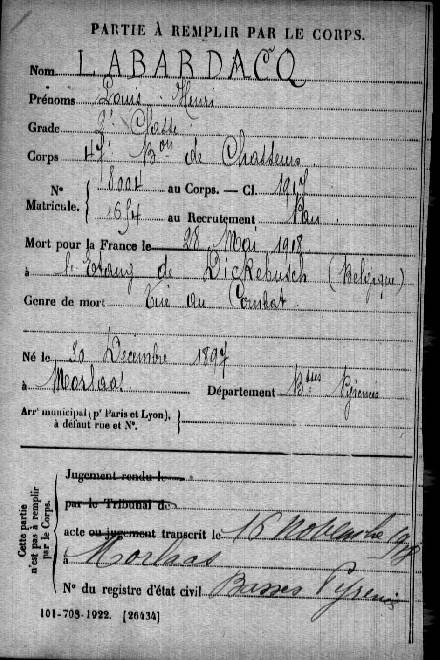 PARTIE À REMPLIR PAR LE CORPS.
Nom LABARDACQ
Prénoms Louis Henri
Grade 2e Classe
Corps 47e Bon de Chasseurs
No Matricule. 18004 au Corps. — Cl. 1917
1654 au Recrutement Pau
Mort pour la France le 28 Mai 1918
à l'Etang de Dickebusch (Belgique)
Genre de mort Tué au Combat
Né le 30 Décembre 1897
à Morlaas Département Bses Pyrénées
Arrt municipal (pr Paris et Lyon),
à défaut rue et No.
Cette partie
n'est pas à remplir
par le Corps.
Jugement rendu le
par le Tribunal de
acte ou jugement transcrit le 16 Novembre 1918
à Morlaas
No du registre d'état civil Basses Pyrénées
101-708-1922. [26434]